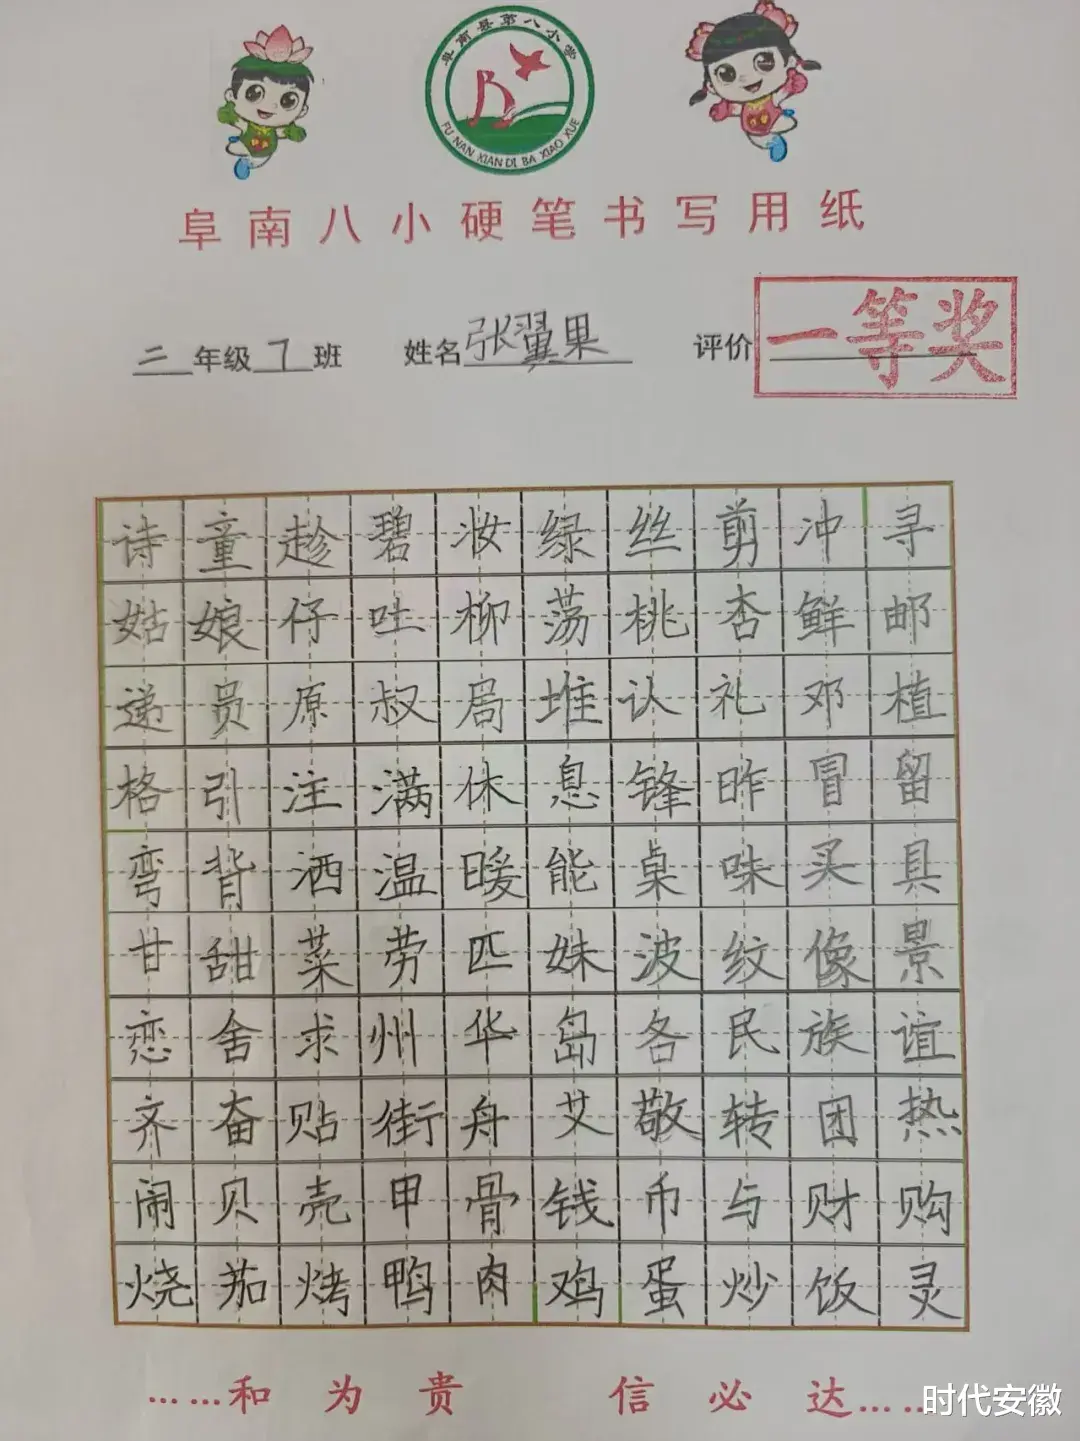 阜南县第八小学
FU NAN XIAN DI BA XIAO XUE
阜南八小硬笔书写用纸
二年级7班 姓名张翼果 评价 一等奖
诗童趁碧妆绿丝剪冲寻
姑娘仔吐柳荡桃杏鲜邮
递员原叔局堆认礼邓植
格引注满休息锋昨冒留
弯背洒温暖能桌味买具
甘甜菜劳匹妹波纹像景
恋舍求州华岛各民族谊
齐奋贴街舟艾敬转团热
闹贝壳甲骨钱币与财购
烧茄烤鸭肉鸡蛋炒饭灵
……和为贵 信必达……
时代安徽